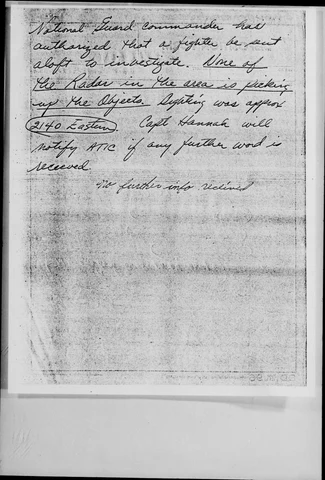 National Guard commander has
authorized that a fighter be sent
aloft to investigate. None of
the Radar in the area is picking
up the Objects. Sighting was approx
2140 Eastern. Capt Hannah will
notify ATIC if any further word is
received.
No further info received